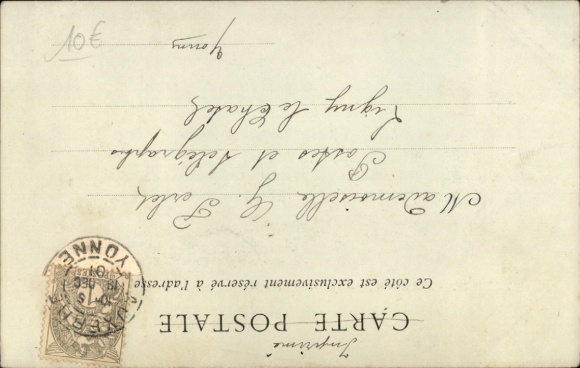 Imprimé
CARTE POSTALE
Ce côté est exclusivement réservé à l'adresse
Mademoiselle G.
Postes et télégraphes
Ligny le Chatel
Yonne
AUXERRE
18 DEC
01
YONNE
10€